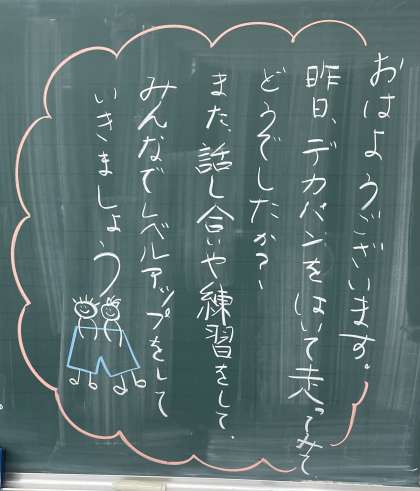 おはようございます。
昨日、デカパンをはいて走ってみて、
どうでしたか？
また、話し合いや練習をして、
みんなでレベルアップをして
いきましょう